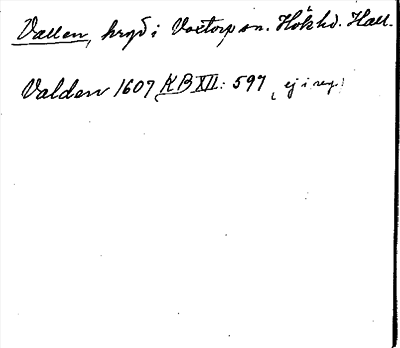 Vallen, hrgd i Voxtorp sn. Höks hd. Hall.
Valden 1607 KB XII: 597 (ej i reg.)